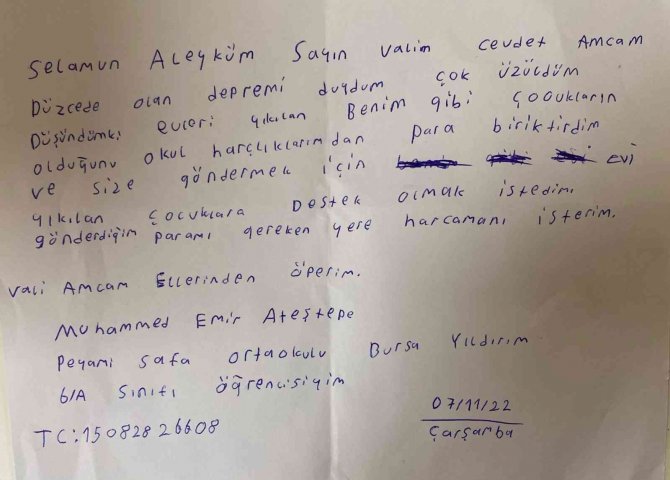 Selamun Aleyküm Sayın Valim Cevdet Amcam
Düzcede olan depremi duydum çok üzüldüm
Düşündümki evleri yıkılan Benim gibi çocukların
olduğunu okul harçlıklarımdan para biriktirdim
ve size göndermek için evi
yıkılan çocuklara Destek olmak istedim.
gönderdiğim paramı gereken yere harcamanı isterim.
Vali Amcam Ellerinden öperim.
Muhammed Emir Ateştepe
Peyami Safa ortaokulu Bursa Yıldırım
6/A sınıfı öğrencisiyim
07/11/22
TC:15082826608
Çarşamba